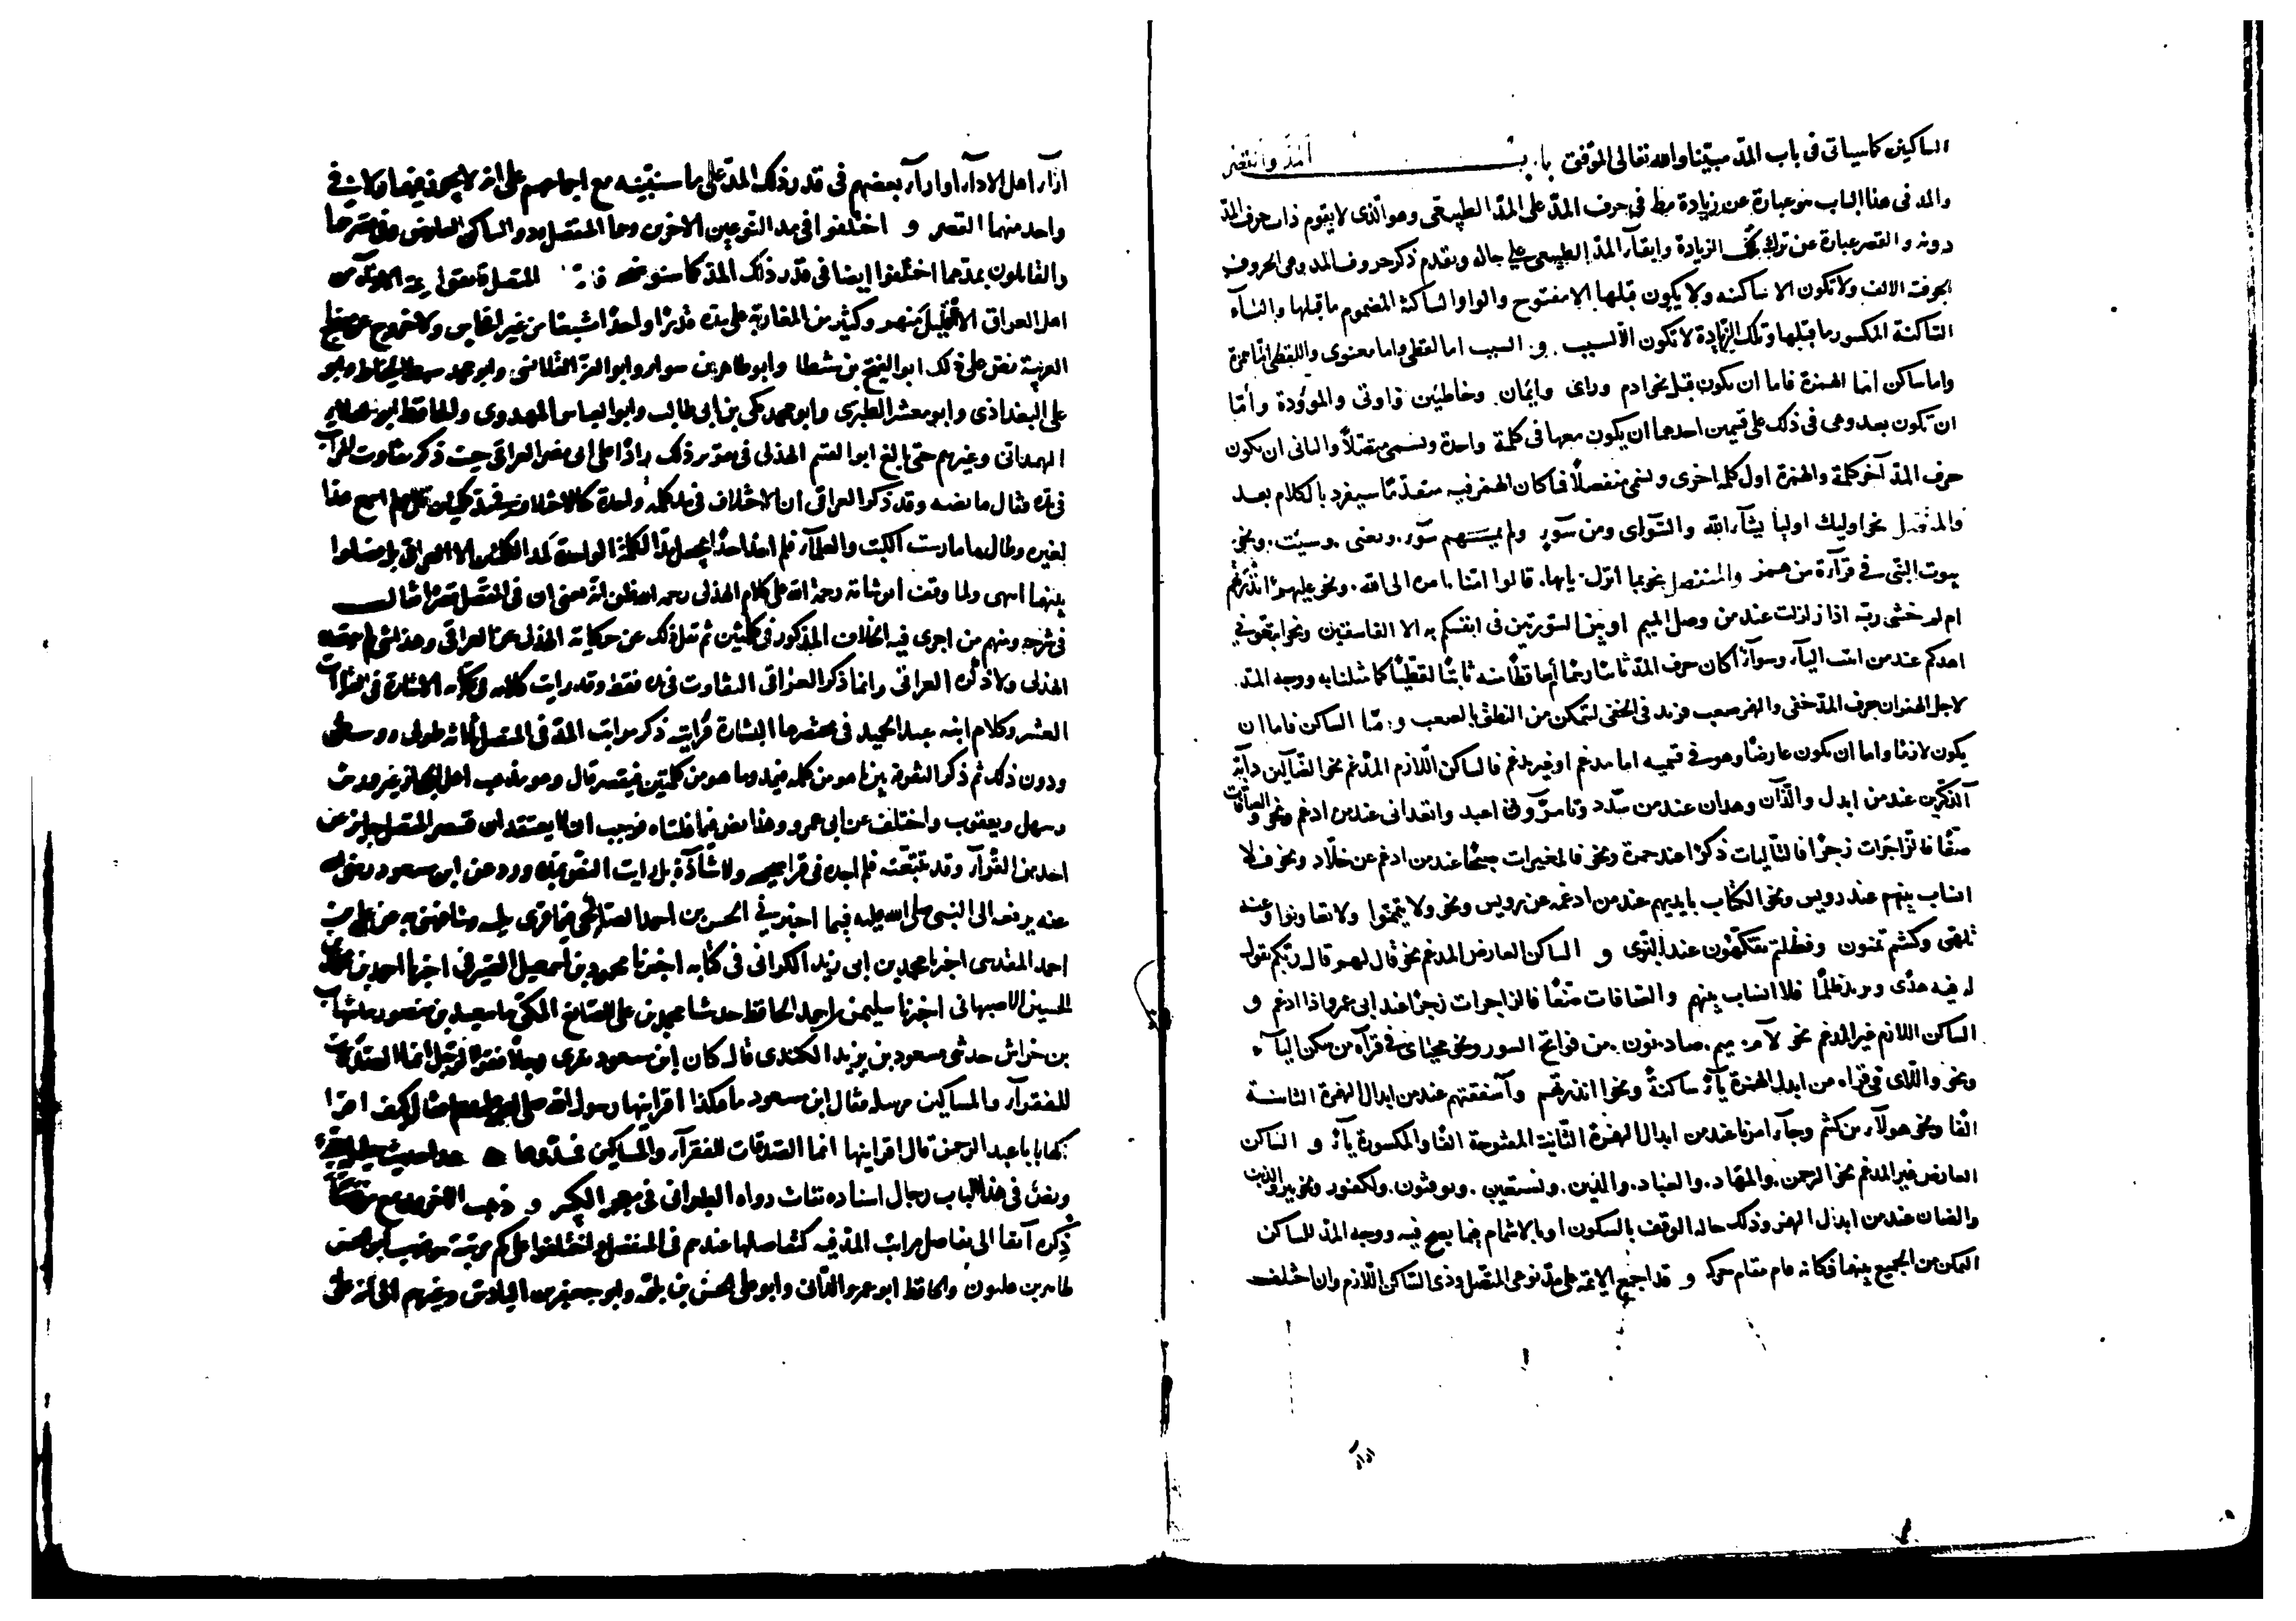 الساكنين كما سياتى فى باب المد مبينا والله تعالى الموفق باب المد والقصر
والمد فى هذا الباب هو عبارة عن زيادة مط فى حرف المد على المد الطبيعى وهو الذى لا يقوم ذات حرف المد
دونه والقصر عبارة عن ترك تلك الزيادة وابقآء المد الطبيعى على حاله وتقدم ذكر حروف المد وهى الحروف
الجوفية الالف ولا تكون الا ساكنه ولا يكون قبلها الا مفتوح والواو الساكنة المضموم ما قبلها واليآء
الساكنة المكسور ما قبلها وتلك الزيادة لا تكون الا لسبب و السبب اما لفظى واما معنوى واللفظى اما همزة
واما ساكن اما الهمزة فاما ان تكون قبل نحو ادم وراى وايمان وخاطئين واوتى والموؤدة واما
ان تكون بعد وهى فى ذلك على قسمين احدهما ان يكون معها فى كلمة واحدة ويسمى متصلا والثانى ان يكون
حرف المد آخر كلمة والهمزة اول كلمة اخرى ويسمى منفصلا فما كان الهمز فيه متقدما سيفرد بالكلام بعد
والمتصل نحو اوليك اوليآ يشآء الله والسواى ومن سوء ولم يمسسهم سوء ويضى وسيئت ونحو
بيوت النبى فى قرآءة من همز والمنفصل نحو بما انزل يايها قالوا امنا امره الى الله ونحو عليهم ءانذرتهم
ام لم خشى ربه اذا زلزلت عند من وصل الميم او بين السورتين فى انفسكم به الا الفاسقين ونحو اتبعونى
اهدكم عند من اثبت اليآء وسوآء اكان حرف المد ثابتا رسما ام ساقطا منه ثابتا لفظيا كما مثلنا به ووجه المد
لاجل الهمز ان حرف المد خفى والهمز صعب فزيد فى الخفى ليتمكن من النطق بالصعب و اما الساكن فاما ان
يكون لازما واما ان يكون عارضا وهو فى قسميه اما مدغم او غير مدغم فالساكن اللازم المدغم نحو الضآلين دآبة
آلذكرين عند من ابدل واللذآن وهذان عند من شدد وتامرونى اعبد واتعدانى عند من ادغم ونحو والصافات
صفا فالزاجرات زجرا فالتاليات ذكرا عند حمزة ونحو فالمغيرات صبحا عند من ادغم عن خلاد ونحو فلا
انساب بينهم عند رويس ونحو الكتاب بايديهم عند من ادغمه عن رويس ونحو ولا تيمموا ولا تعاونوا وعنه
تلهى وكنتم تمنون وفظلتم تفكهون عند البزى و الساكن العارض المدغم نحو قال لهم قال ربكم يقول
له فيه هدى ويريد ظلما فلا انساب بينهم والصافات صفا فالزاجرات زجرا عند ابى عمرو اذا ادغم و
الساكن اللازم غير المدغم نحو لآم ميم صاد نون من فواتح السور ونحو محياى فى قرآءة من سكن اليآء
ونحو واللاى فى قراءة من ابدل الهمزة يآء ساكنة ونحو ءانذرتهم وآشفقتم عند من ابدل الهمزة الثانية
الفا ونحو هولآء ان كنتم وجآء امرنا عند من ابدل الهمزة الثانية المفتوحة الفا والمكسورة يآء و الساكن
العارض غير المدغم نحو الرحمن والمهاد والعباد والدين ونستعين ويوقنون ولكفور ونحو بير والذيب
والضان عند من ابدل الهمز وذلك حالة الوقف بالسكون او بالاشمام فيما يصح فيه ووجه المد للساكن
التمكن من الجمع بينهما فكانه قام مقام حركة و قد اجمع الايمة على مد نوعى المتصل وذى الساكن اللازم وان اختلفت
ارآء اهل الادآء او ارآء بعضهم فى قدر ذلك المد على ما سنبينه مع اجماعهم على انه لا يجوز فيهما ولا فى
واحد منهما القصر و اختلفوا فى مد النوعين الاخرين وهما المنفصل وذو الساكن العارض وفى قصرهما
والقايلون بمدهما اختلفوا ايضا فى قدر ذلك المد كما سنوضحه المتصل
اهل العراق الا القليل منهم وكثير من المغاربة على مده قدرا واحدا مشبعا من غير افحاش ولا خروج عن منهاج
العربية نص على ذلك ابو الفتح بن شيطا وابو طاهر بن سوار وابو العز القلانسى وابو محمد سبط الخياط وابو
على البغداذى وابو معشر الطبرى وابو محمد مكى بن ابى طالب وابو العباس المهدوى والحافظ ابو العلاء
الهمدانى وغيرهم حتى بالغ ابو القسم الهذلى فى تقرير ذلك رادا على ابى نصر العراقى حيث ذكر تفاوت المراتب
فى مده فقال ما نصه وقد ذكر العراقى ان الاختلاف فى مد كلمة واحدة كالاختلاف فى مد كلمتين قال ولم اسمع هذا
لغيره وطال ما مارست الكتب والعلمآء فلم اجد احدا يجعل مد الكلمة الواحدة كمد الكلمتين الا العراقى بل فصلوا
بينهما انتهى ولما وقف ابو شامة رحمه الله على كلام الهذلى رحمه الله ظن انه يعنى ان فى المتصل قصرا فقال
فى شرحه ومنهم من اجرى فيه الخلاف المذكور فى كلمتين ثم نقل ذلك عن حكاية الهذلى عن العراقى وهذا شى لم يقصده
الهذلى ولا ذكره العراقى وانما ذكر العراقى التفاوت فى مده فقط وقد رايت كلامه فى كتابه الاشارة فى القراءات
العشر وكلام ابنه عبد الحميد فى مختصرها البشارة فرايته ذكر مراتب المد فى المتصل ثلاثة طولى ووسطى
ودون ذلك ثم ذكر التفرقة بين ما هو من كلمة فيمد وما هو من كلمتين فيقصر قال وهو مذهب اهل الحجاز غير ورش
وسهل ويعقوب واختلف عن ابى عمرو وهذا نص فيما قلناه فوجب ان لا يعتقد ان قصر المتصل جايز عن
احد من القرآء وقد تتبعته فلم اجده فى قراءة صحيحة ولا شآذة بل رايت النص بمده ورد عن ابن مسعود رضى الله
عنه يرفعه الى النبى صلى الله عليه فيما اخبرنى الحسن بن احمد الصالحى فيما قرى عليه وشافهنى به عن على بن
احمد المقدسى اخبرنا محمد بن ابى زيد الكرانى فى كتابه اخبرنا محمود بن اسمعيل الصيرفى اخبرنا احمد بن محمد بن
الحسين الاصبهانى اخبرنا سليمن بن احمد الحافظ حدثنا محمد بن على الصايغ المكى حدثنا سعيد بن منصور حدثنا شهاب
بن خراش حدثنى مسعود بن يزيد الكندى قال كان ابن مسعود يقرى رجلا فقرا الرجل انما الصدقات
للفقرآء والمساكين مرسلة فقال ابن مسعود ما هكذا اقرانيها رسول الله صلى الله عليه وسلم فقال كيف اقرا
كها يا ابا عبد الرحمن قال اقرانيها انما الصدقات للفقرآء والمساكين فمدوها هذا حديث جليل حجة
ونص فى هذا الباب رجال اسناده ثقات رواه الطبرانى فى معجمه الكبير و ذهب الاخرون مع من قدمنا
ذكره آنفا الى تفاضل مراتب المد فيه كتفاضلها عندهم فى المنفصل واختلفوا على كم مرتبة هو فذهب ابو الحسن
طاهر بن غلبون والحافظ ابو عمرو الدانى وابو على الحسن بن بليمة وابو جعفر بن الباذش وغيرهم الى انها على